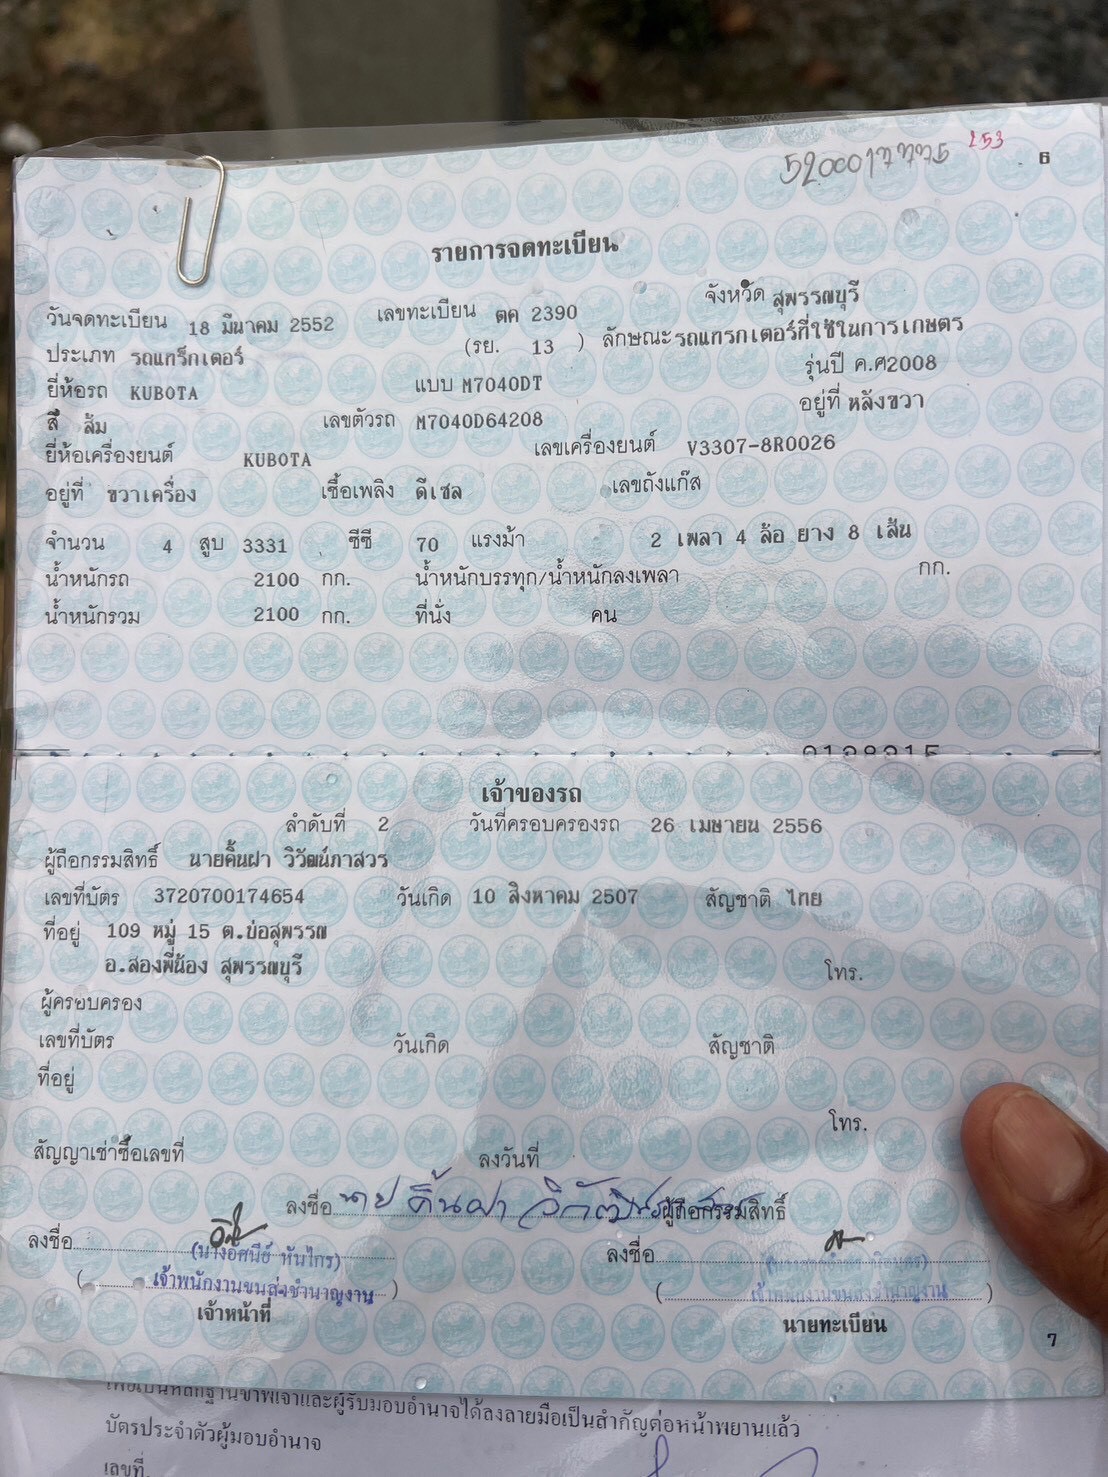 5200017775 253 6
รายการจดทะเบียน
วันจดทะเบียน 18 มีนาคม 2552 เลขทะเบียน ตค 2390 จังหวัด สุพรรณบุรี
ประเภท รถแทร็กเตอร์ (รย. 13 ) ลักษณะรถแทรกเตอร์ที่ใช้ในการเกษตร
ยี่ห้อรถ KUBOTA แบบ M7040DT รุ่นปี ค.ศ2008
สี ส้ม เลขตัวรถ M7040D64208 อยู่ที่ หลังขวา
ยี่ห้อเครื่องยนต์ KUBOTA เลขเครื่องยนต์ V3307-8R0026
อยู่ที่ ขวาเครื่อง เชื้อเพลิง ดีเซล เลขถังแก๊ส
จำนวน 4 สูบ 3331 ซีซี 70 แรงม้า 2 เพลา 4 ล้อ ยาง 8 เส้น
น้ำหนักรถ 2100 กก. น้ำหนักบรรทุก/น้ำหนักลงเพลา กก.
น้ำหนักรวม 2100 กก. ที่นั่ง คน
เจ้าของรถ
ลำดับที่ 2 วันที่ครอบครองรถ 26 เมษายน 2556
ผู้ถือกรรมสิทธิ์ นายคิ้นฝา วิวัฒน์ภาสวร
เลขที่บัตร 3720700174654 วันเกิด 10 สิงหาคม 2507 สัญชาติ ไทย
ที่อยู่ 109 หมู่ 15 ต.บ่อสุพรรณ
อ.สองพี่น้อง สุพรรณบุรี โทร.
ผู้ครอบครอง
เลขที่บัตร วันเกิด สัญชาติ
ที่อยู่
โทร.
สัญญาเช่าซื้อเลขที่ ลงวันที่
ลงชื่อ นาย คิ้นฝา ผู้ถือกรรมสิทธิ์
ลงชื่อ ลงชื่อ
(นางอัศนีย์ หันไกร)
( เจ้าพนักงานขนส่งชำนาญงาน ) ( เจ้าพนักงานขนส่งชำนาญงาน )
เจ้าหน้าที่ นายทะเบียน
7
เพื่อเป็นหลักฐานข้าพเจ้าและผู้รับมอบอำนาจได้ลงลายมือเป็นสำคัญต่อหน้าพยานแล้ว
บัตรประจำตัวผู้มอบอำนาจ
เลขที่.